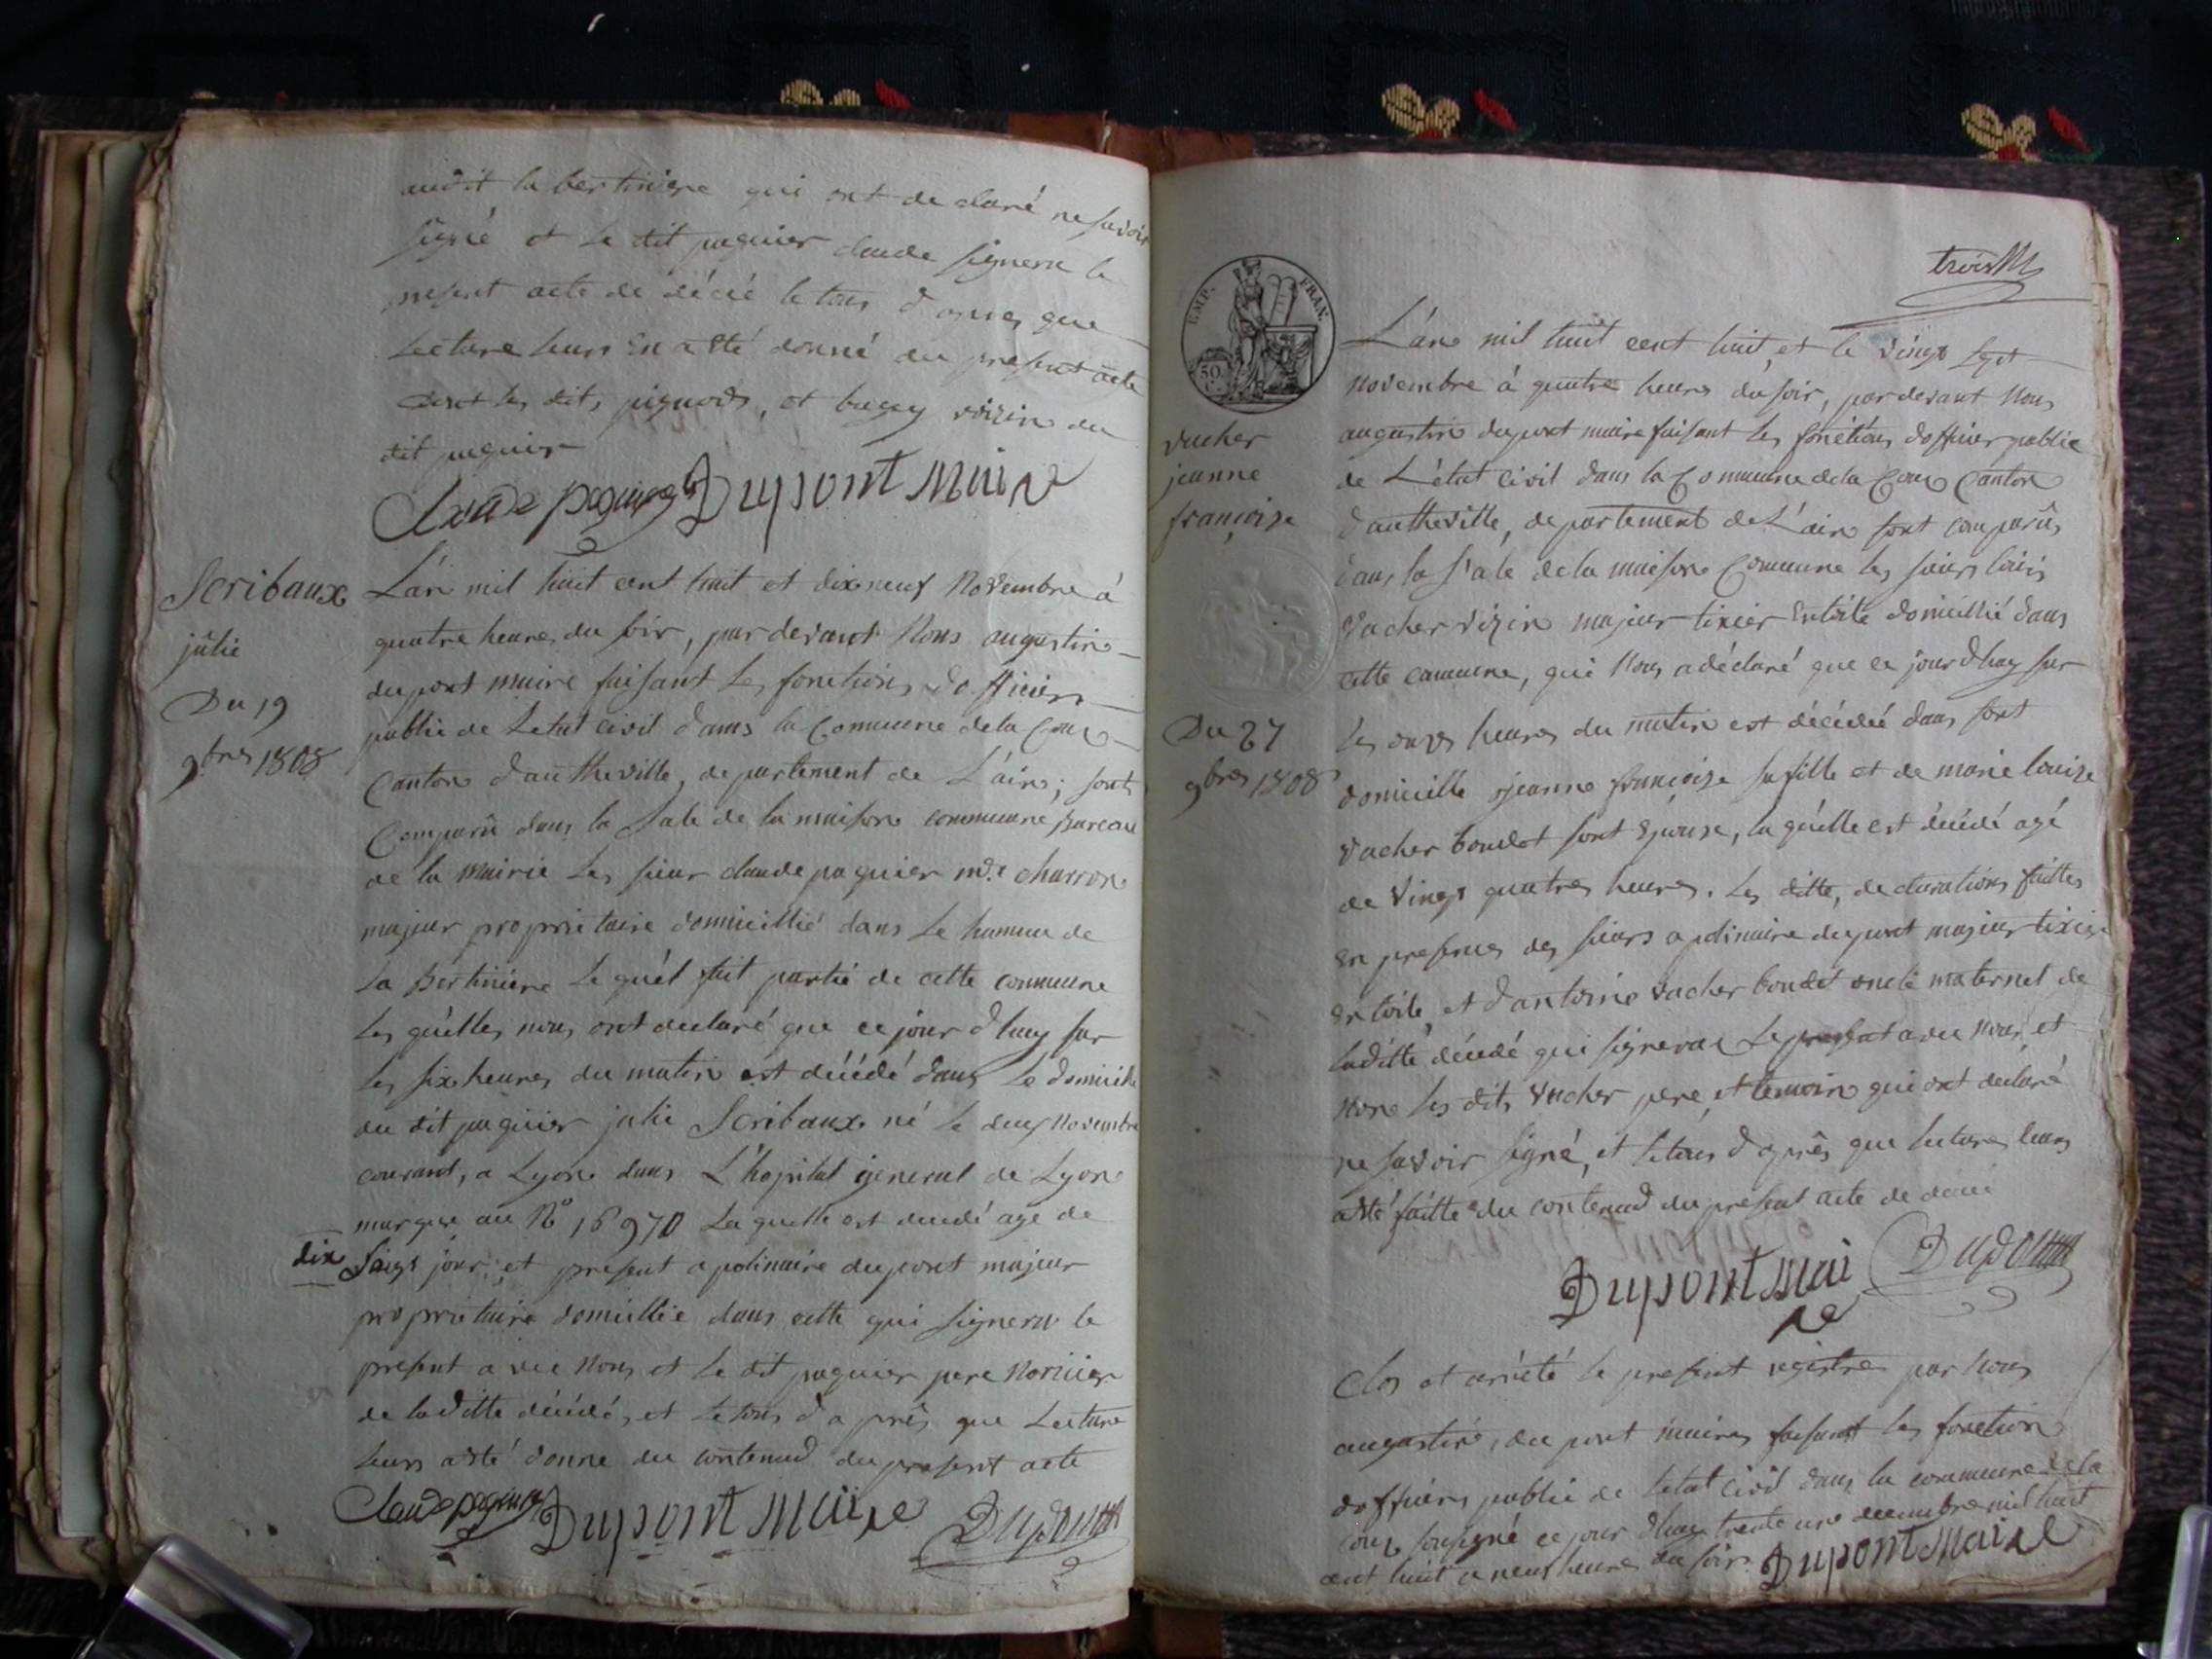 audit la bertiniere qui ont declaré ne savoir
signé et le dit paquier claude signera le
present acte de décié le tous d'apres que
Lecture leurs En a été donné du present acte
dont les dits pignods, et bugey voizin du
dit paquier
Claude paquier Dupont Maire
Scribaux
julie
Du 19
9bres 1808
L'an mil huit cent huit et dix neuf Novembre à
quatre heures du soir, par devant Nous augustin
dupont maire faisant les fonctions d'officier
public de Letat civil dans la Commune de la Coux
Canton d'autheville, departement de L'ain; sont
Comparu dans la Sale de la maison commune Bureau
de la Mairie Les sieur claude paquier md.e charron
majeur proprietaire domicillié dans le hameau de
La Bertiniere Le quél fait partié de cette commune
Les quélles nous ont declaré que ce jour dhuy sur
les six heures du matin est décédé dans Le domicille
du dit paquier julie Scribaux né le deux Novembre
courant, a Lyon dans L'hopital general de Lyon
marque au No 16970 La quelle est decedé age de
dix Sèpt jour; et present apolinaire dupont majeur
proprietaire domicillié dans cette qui signera le
present avec Nous et Le dit paquier pere Noricier
de laditte décédé, et le tous d'aprês que Lecture
leurs a été donne du contenud du present acte
Claude paquier Dupont Maire Dupont
trois
EMP. FRAN.
50
vacher
jeanne
françoize
Du 27
9bres 1808
L'an mil huit cent huit, et le vingt Sept
Novembre à quatre heures du soir, par devant Nous
augustin dupont maire faisant les fonctions d'officier public
de L'état Civil dans la Commune de la Coux Canton
d'autheville, departement de L'ain sont comparûs
dans la Sale de la maison Commune les sieurs loüis
Vacher vizin majeur tixier Entoile domicillié dans
cette commune, qui Nous a déclaré que ce jour dhuy sur
les onze heures du matin est décédée dans sont
domicille jeanne françoize sa fille et de marie louize
vacher boudot sont Epouse, la quélle est décédé agé
de vingt quatres heures. Les ditte, declarations faittes
En presence des sieurs apolinaire dupont majeur tixier
En toile, et d'antoine vacher boudot oncle maternel de
laditte décedé qui signeras Le present avec Nous, et
Nore les dits vacher pere et temoin qui ont déclaré
ne savoir signé, et le tous d'aprês que lecture leurs
a été faitte du contenud du present acte de décié
Dupont Maire Dupont
Clos et arrété le present registre par Nous
augustin, du pont maires faisant les fonction
d'officiers public de letat civil dans la commune de la
coux sousigné ce jour dhuy trente une decembre mil huit
cent huit a neuf heure du soir. Dupont Maire